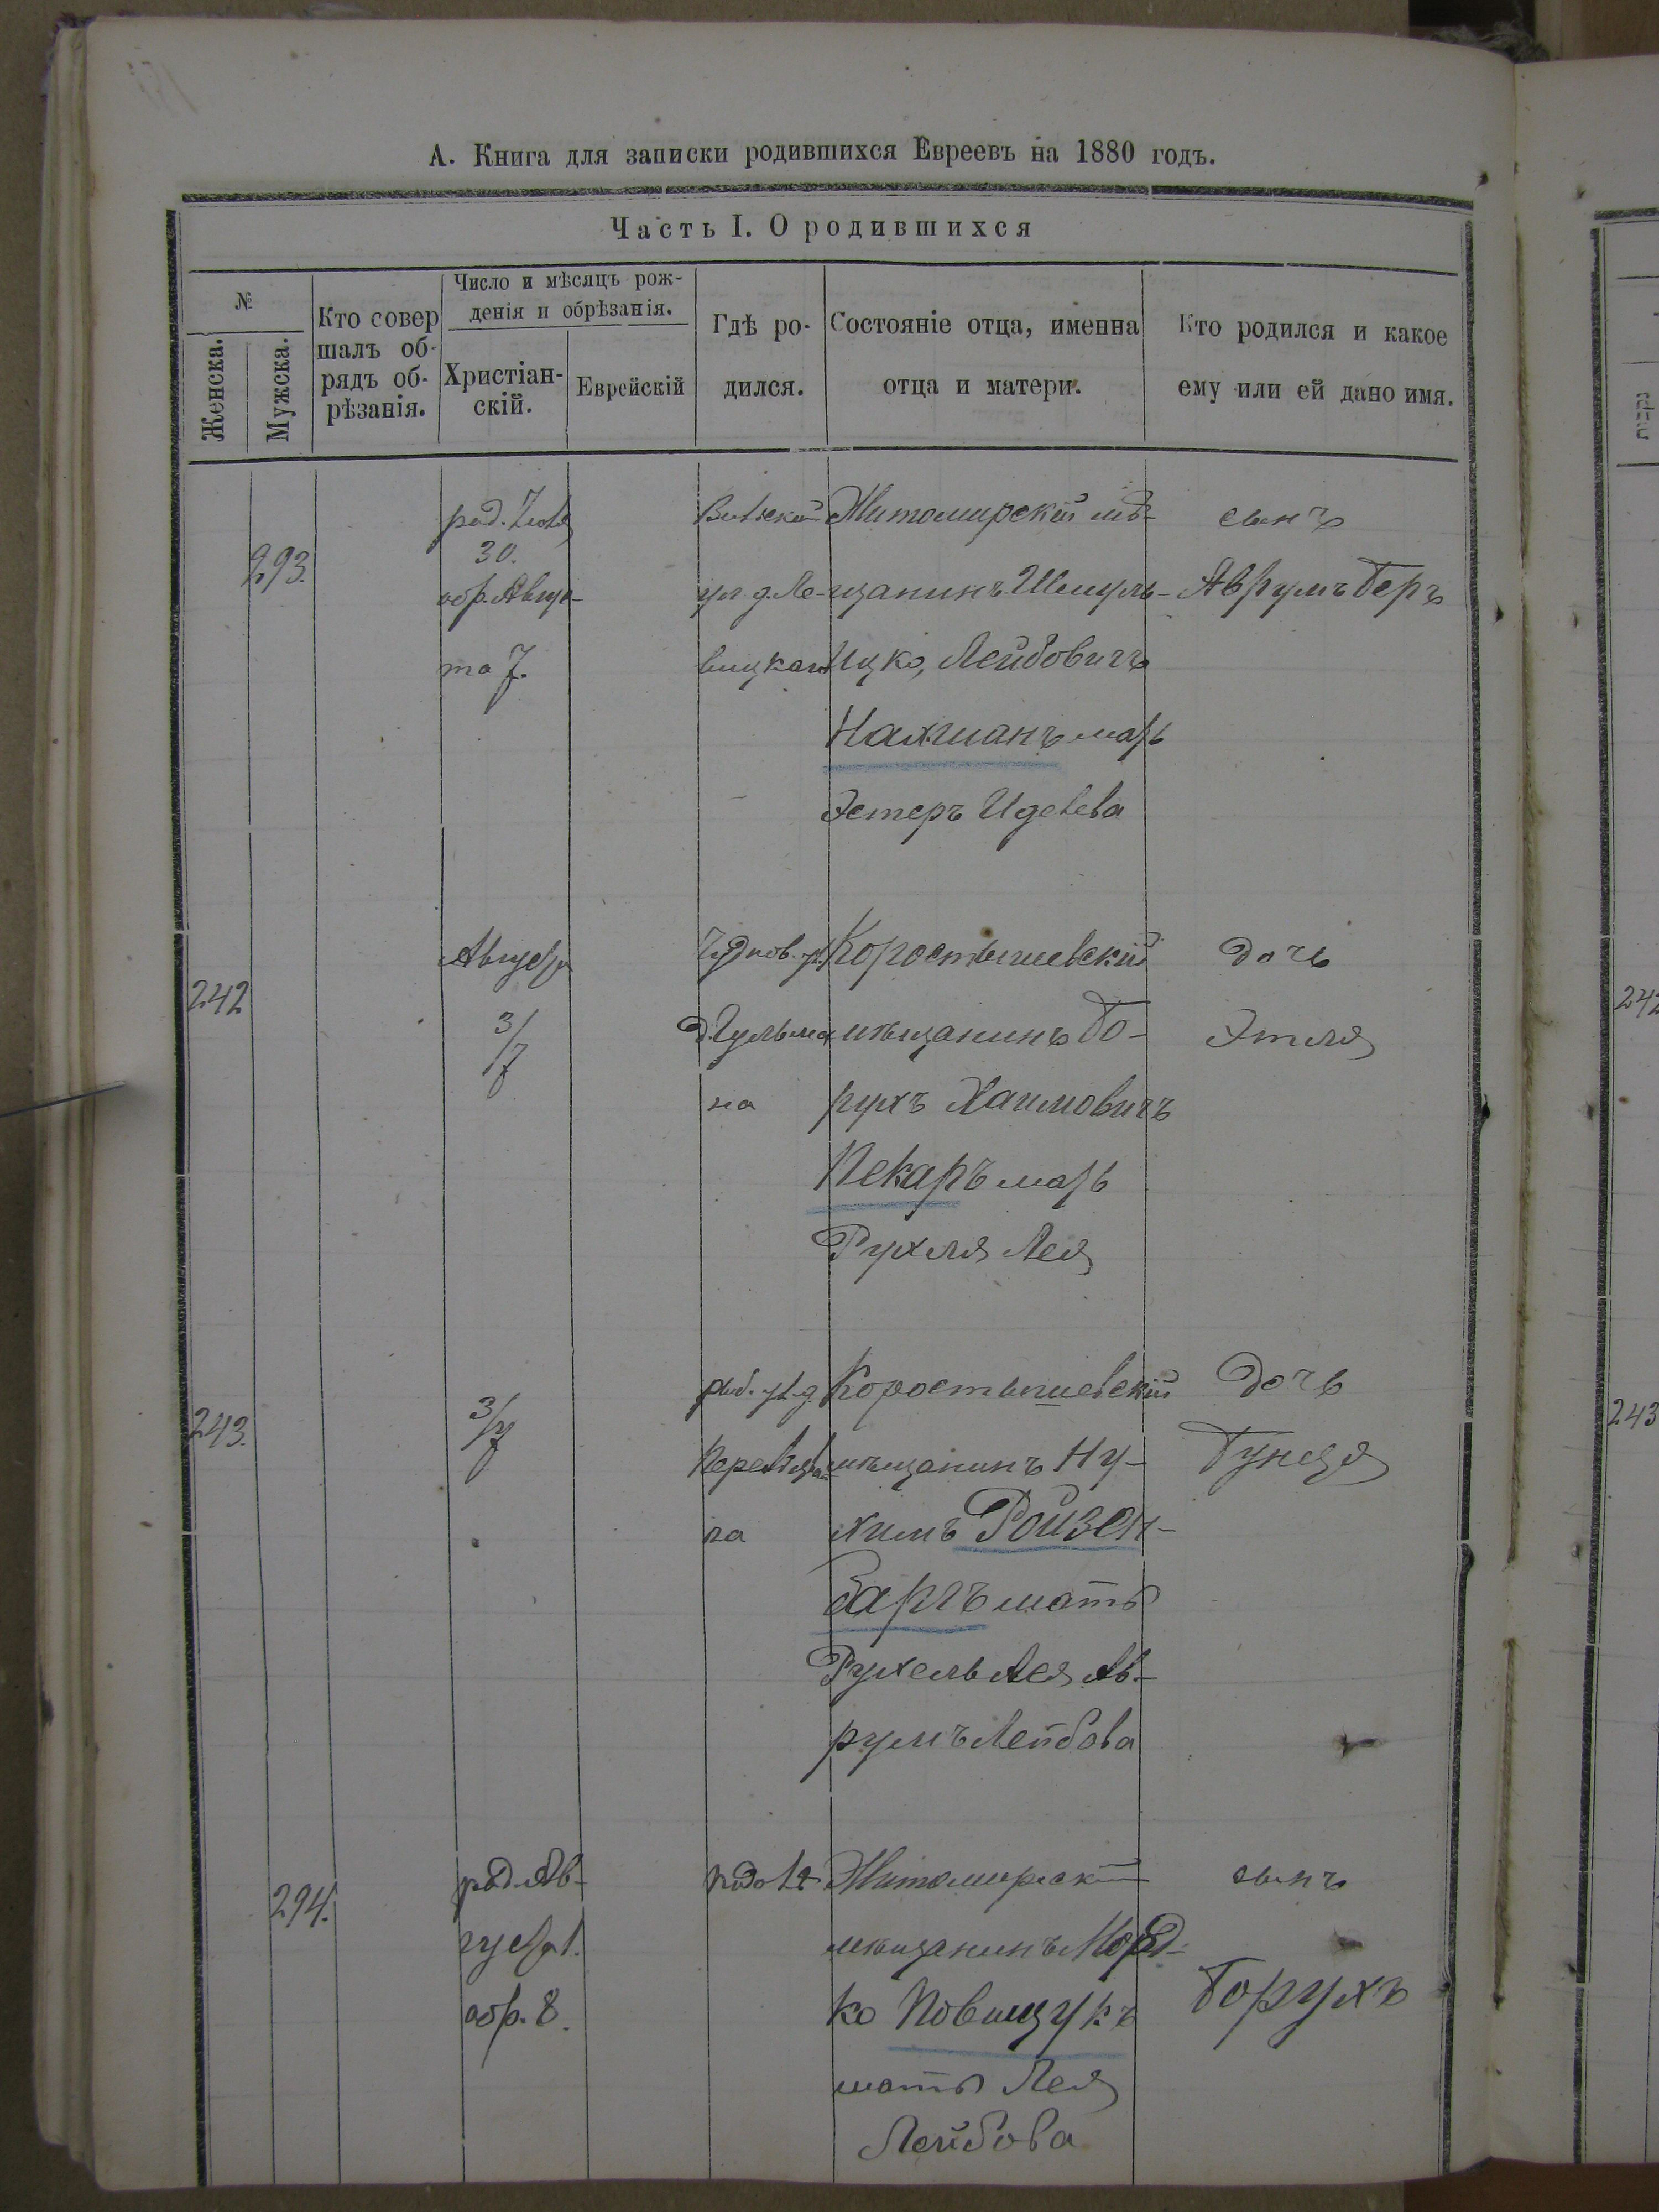 А. Книга для записки родившихся Евреевъ на 1880 годъ.
Часть I. О родившихся
№
Женска.
Мужска.
Кто совер
шалъ об-
рядъ об-
рѣзанія.
Число и мѣсяцъ рож-
денія и обрѣзанія.
Христіан-
скій.
Еврейскій
Гдѣ ро-
дился.
Состояніе отца, именна
отца и матери.
Кто родился и какое
ему или ей дано имя.
293.
род. Іюля
30.
обр. Авгус-
та 7.
ул. д. Ле-
вицкаго
Житомирскій мѣ-
щанинъ Шмуль-
Ицко, Лейбовичъ
Нахманъ мать
Эстеръ
сынъ
Аврумъ Беръ
242
Августа
3/7
Чуднов. ул.
д. Гульма
на
Коростышевскій
мѣщанинъ Бо-
рухъ Хаимовичъ
Пекаръ мать
Рухля Лея
дочь
Этля
243.
3/7
на
Коростышевскій
мѣщанинъ Ну-
химъ Ройзен-
баргъ мать
Рухель Лея Ав-
румъ Лейбова
дочь
Бунця
294.
род. Ав-
густа 1.
обр. 8.
Житомирскій
мѣщанинъ Морд-
ко Повищукъ
мать Лея
Лейбова
сынъ
Борухъ
242
243